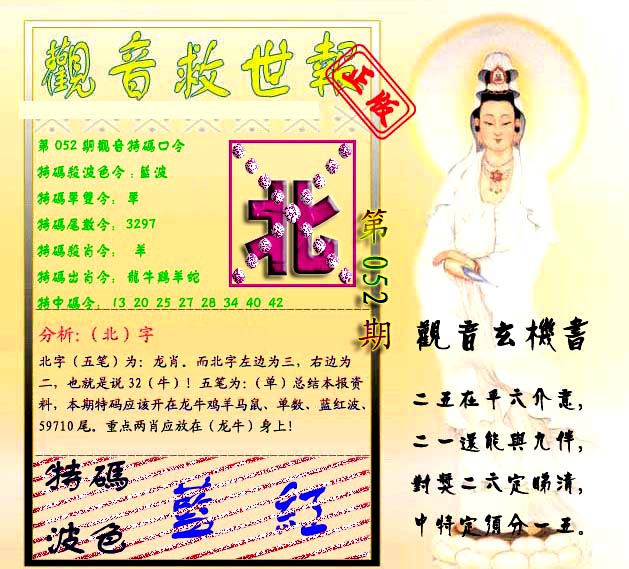 觀音救世報
正版
第 052 期觀音特碼口令
特碼殺波色令：藍波
特碼單雙令： 單
特碼尾數令： 3297
特碼殺肖令： 羊
特碼出肖令： 龍牛鷄羊蛇
特中碼令： 13 20 25 27 28 34 40 42
北
第 052 期
分析:（北）字
北字（五笔）为：龙肖。而北字左边为三，右边为
二，也就是说 32（牛）！五笔为:（单）总结本报资
料，本期特码应该开在龙牛鸡羊马鼠、单数、蓝红波、
59710 尾。重点两肖应放在（龙牛）身上！
特碼
波色
藍 紅
觀音玄機書
二五在平六介意，
二一還能與九伴，
對獎二六定睇清，
中特定須分一五。